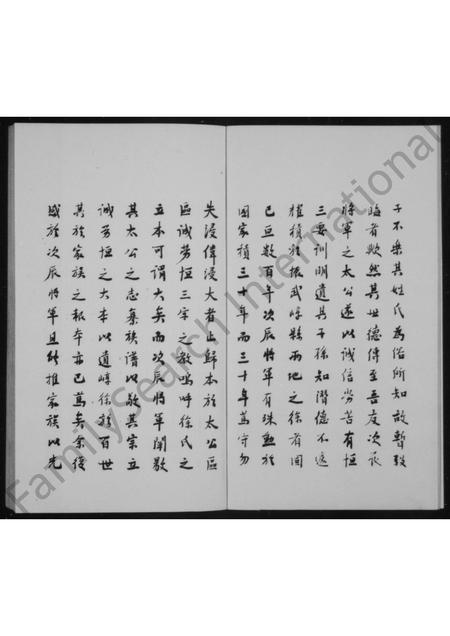 子不樂其姓氏為俗所知故暫毀
臨者歟然其世德傳至吾友次辰
將軍之太公遂以誠信勞苦有恒
三要訓明道其子孫知潛德不遠
權積於振武崞縣兩地之徐者固
已亘數百年次辰將軍有殊勳於
國家積三十年而三十年篤守勿
失浸偉浸大者山歸本於太公區
區誠勞恒三字之教嗚呼徐氏之
立本可謂大矣而次辰將軍闡繫
其太公之志纂族譜以敬其宗立
誠勞恒之大本以遺崞徐族百世
其於家族之報本亦已篤矣余復
感於次辰將軍且能推家族以先
FamilySearch International